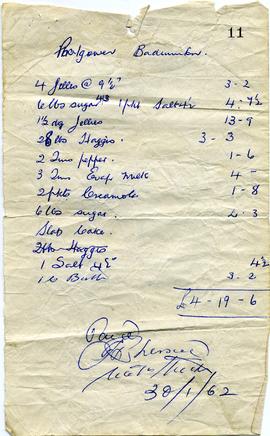 11
Badminton.
4 Jellies @ 9½ᵈ 3 - 2
6 lbs sugar 1 pkt Salt 4½ 4 - 7½
1½ Jellies 13 - 9
2 lbs Haggis 3 - 3
2 Tins pepper. 1 - 6
3 Tins Evap milk 4 -
2 pkts Creamola 1 - 8
6 lbs sugar. 2 . 3
Slab Cake.
Haggis
1 Salt 4½ᵈ 4½
3 - 2
£4 - 19 - 6
Paid
30/1/62